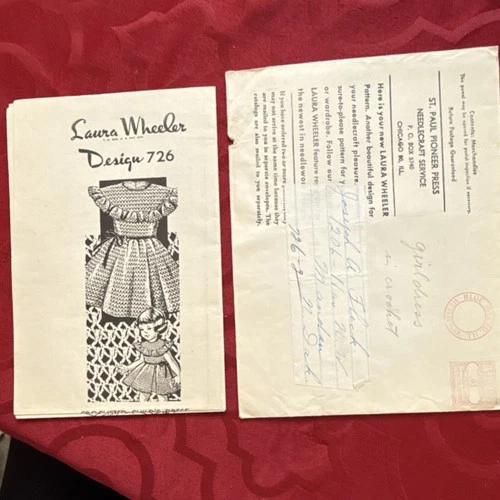 Laura Wheeler
Design 726
Contents: Merchandise
Return Postage Guaranteed
ST. PAUL PIONEER PRESS
NEEDLECRAFT SERVICE
P. O. BOX 5740
CHICAGO 80, ILL.
Here is your new LAURA WHEELER
Pattern. Another beautiful design for
your needlecraft pleasure.
sure-to-please pattern for y
or wardrobe. Follow our
LAURA WHEELER feature re
the newest in needlewor
If you have ordered two or more
may not arrive at the same time because they
are mailed to you in separate envelopes. The
catalogs are also mailed to you separately.
Joseph A. Fleck
Mandan
N. Dak.
726-2
girl dress
in crochet